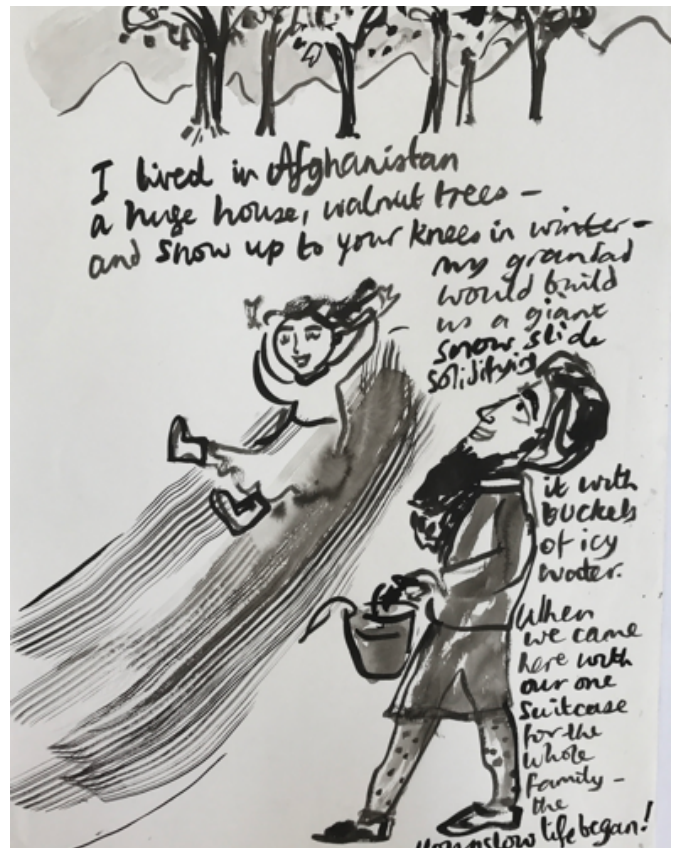 I lived in Afghanistan
a huge house, walnut trees –
and snow up to your knees in winter –
my grandad
would build
us a giant
snow slide
solidifying
it with
buckets
of icy
water.
When
we came
here with
our one
suitcase
for the
whole
family –
the
Hounslow life began!